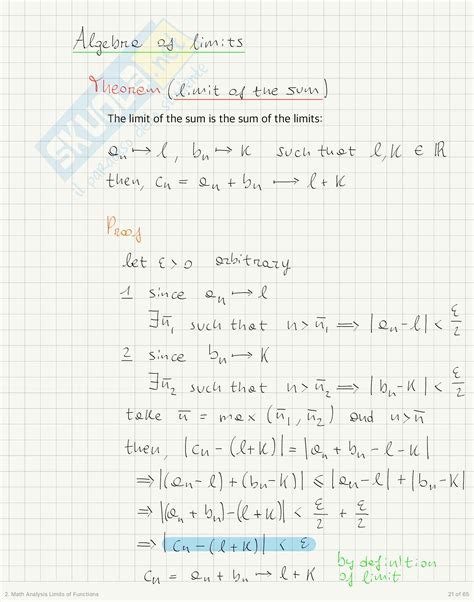 Algebra of limits
Theorem (limit of the sum)
The limit of the sum is the sum of the limits:
aₙ ↦ l, bₙ ↦ K such that l, K ∈ ℝ
then, cₙ = aₙ + bₙ ⟼ l + K
Proof
let ε > 0 arbitrary
1 since aₙ ↦ l
∃n̄₁ such that n > n̄₁ ⟹ |aₙ - l| < ε/2
2 since bₙ ↦ K
∃n̄₂ such that n > n̄₂ ⟹ |bₙ - K| < ε/2
take n̄ = max (n̄₁, n̄₂) and n > n̄
then, |cₙ - (l + K)| = |aₙ + bₙ - l - K|
⟹ |(aₙ - l) + (bₙ - K)| ⩽ |aₙ - l| + |bₙ - K|
⟹ |(aₙ + bₙ) - (l + K)| < ε/2 + ε/2
⟹ |cₙ - (l + K)| < ε
cₙ = aₙ + bₙ ↦ l + K
by definition
of limit
SKUOLA.net
il paradiso dello studente
2. Math Analysis Limits of Functions
21 of 65